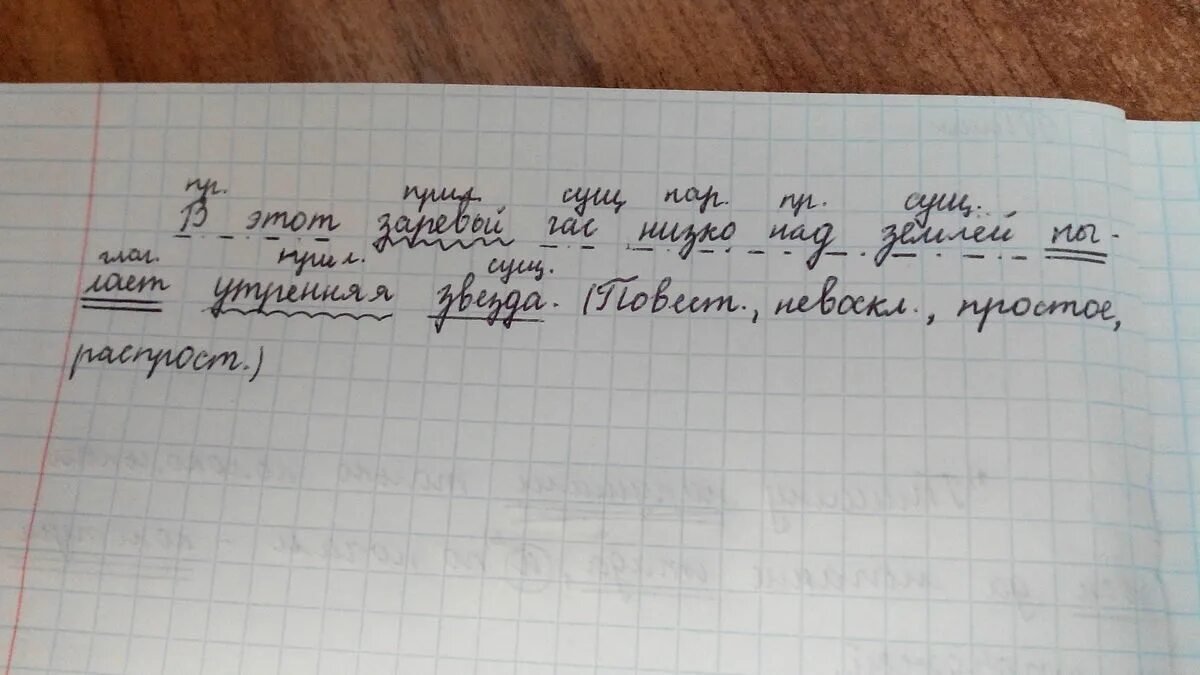 пр. прил. сущ. нар. пр. сущ.
В этот заревый час низко над землей пы-
глаг. прил. сущ.
лает утренняя звезда. (Повест., невоскл., простое,
распрост.)